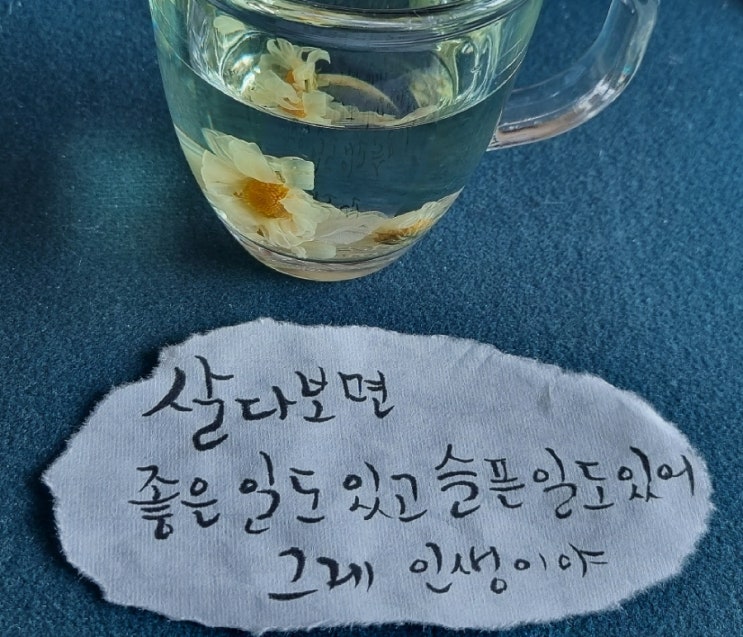 살다보면
좋은 일도 있고 슬픈 일도 있어
그레 인생이야